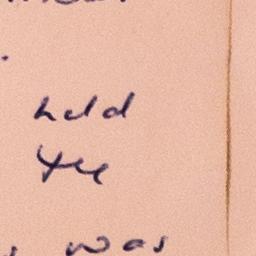 held
the
was